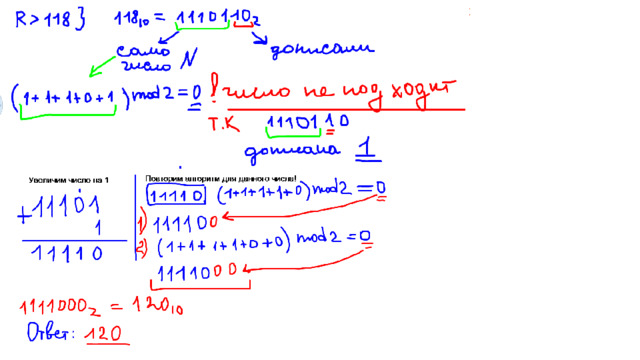 R > 118 } 118₁₀ = 1110110₂
само число N
дописали
(1+1+1+0+1) mod 2 = 0 ! число не подходит
Т.К 1110110
дописана 1
Увеличим число на 1
11101
+ 1
11110
Повторим алгоритм для данного числа!
11110 (1+1+1+1+0) mod 2 = 0
1) 111100
2) (1+1+1+1+0+0) mod 2 = 0
1111000
1111000₂ = 120₁₀
Ответ: 120